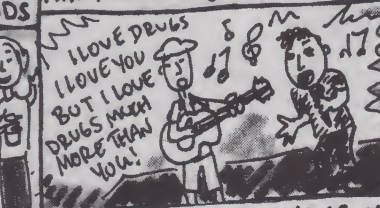 DS
I LOVE DRUGS
I LOVE YOU
BUT I LOVE
DRUGS MUCH
MORE THAN
YOU!